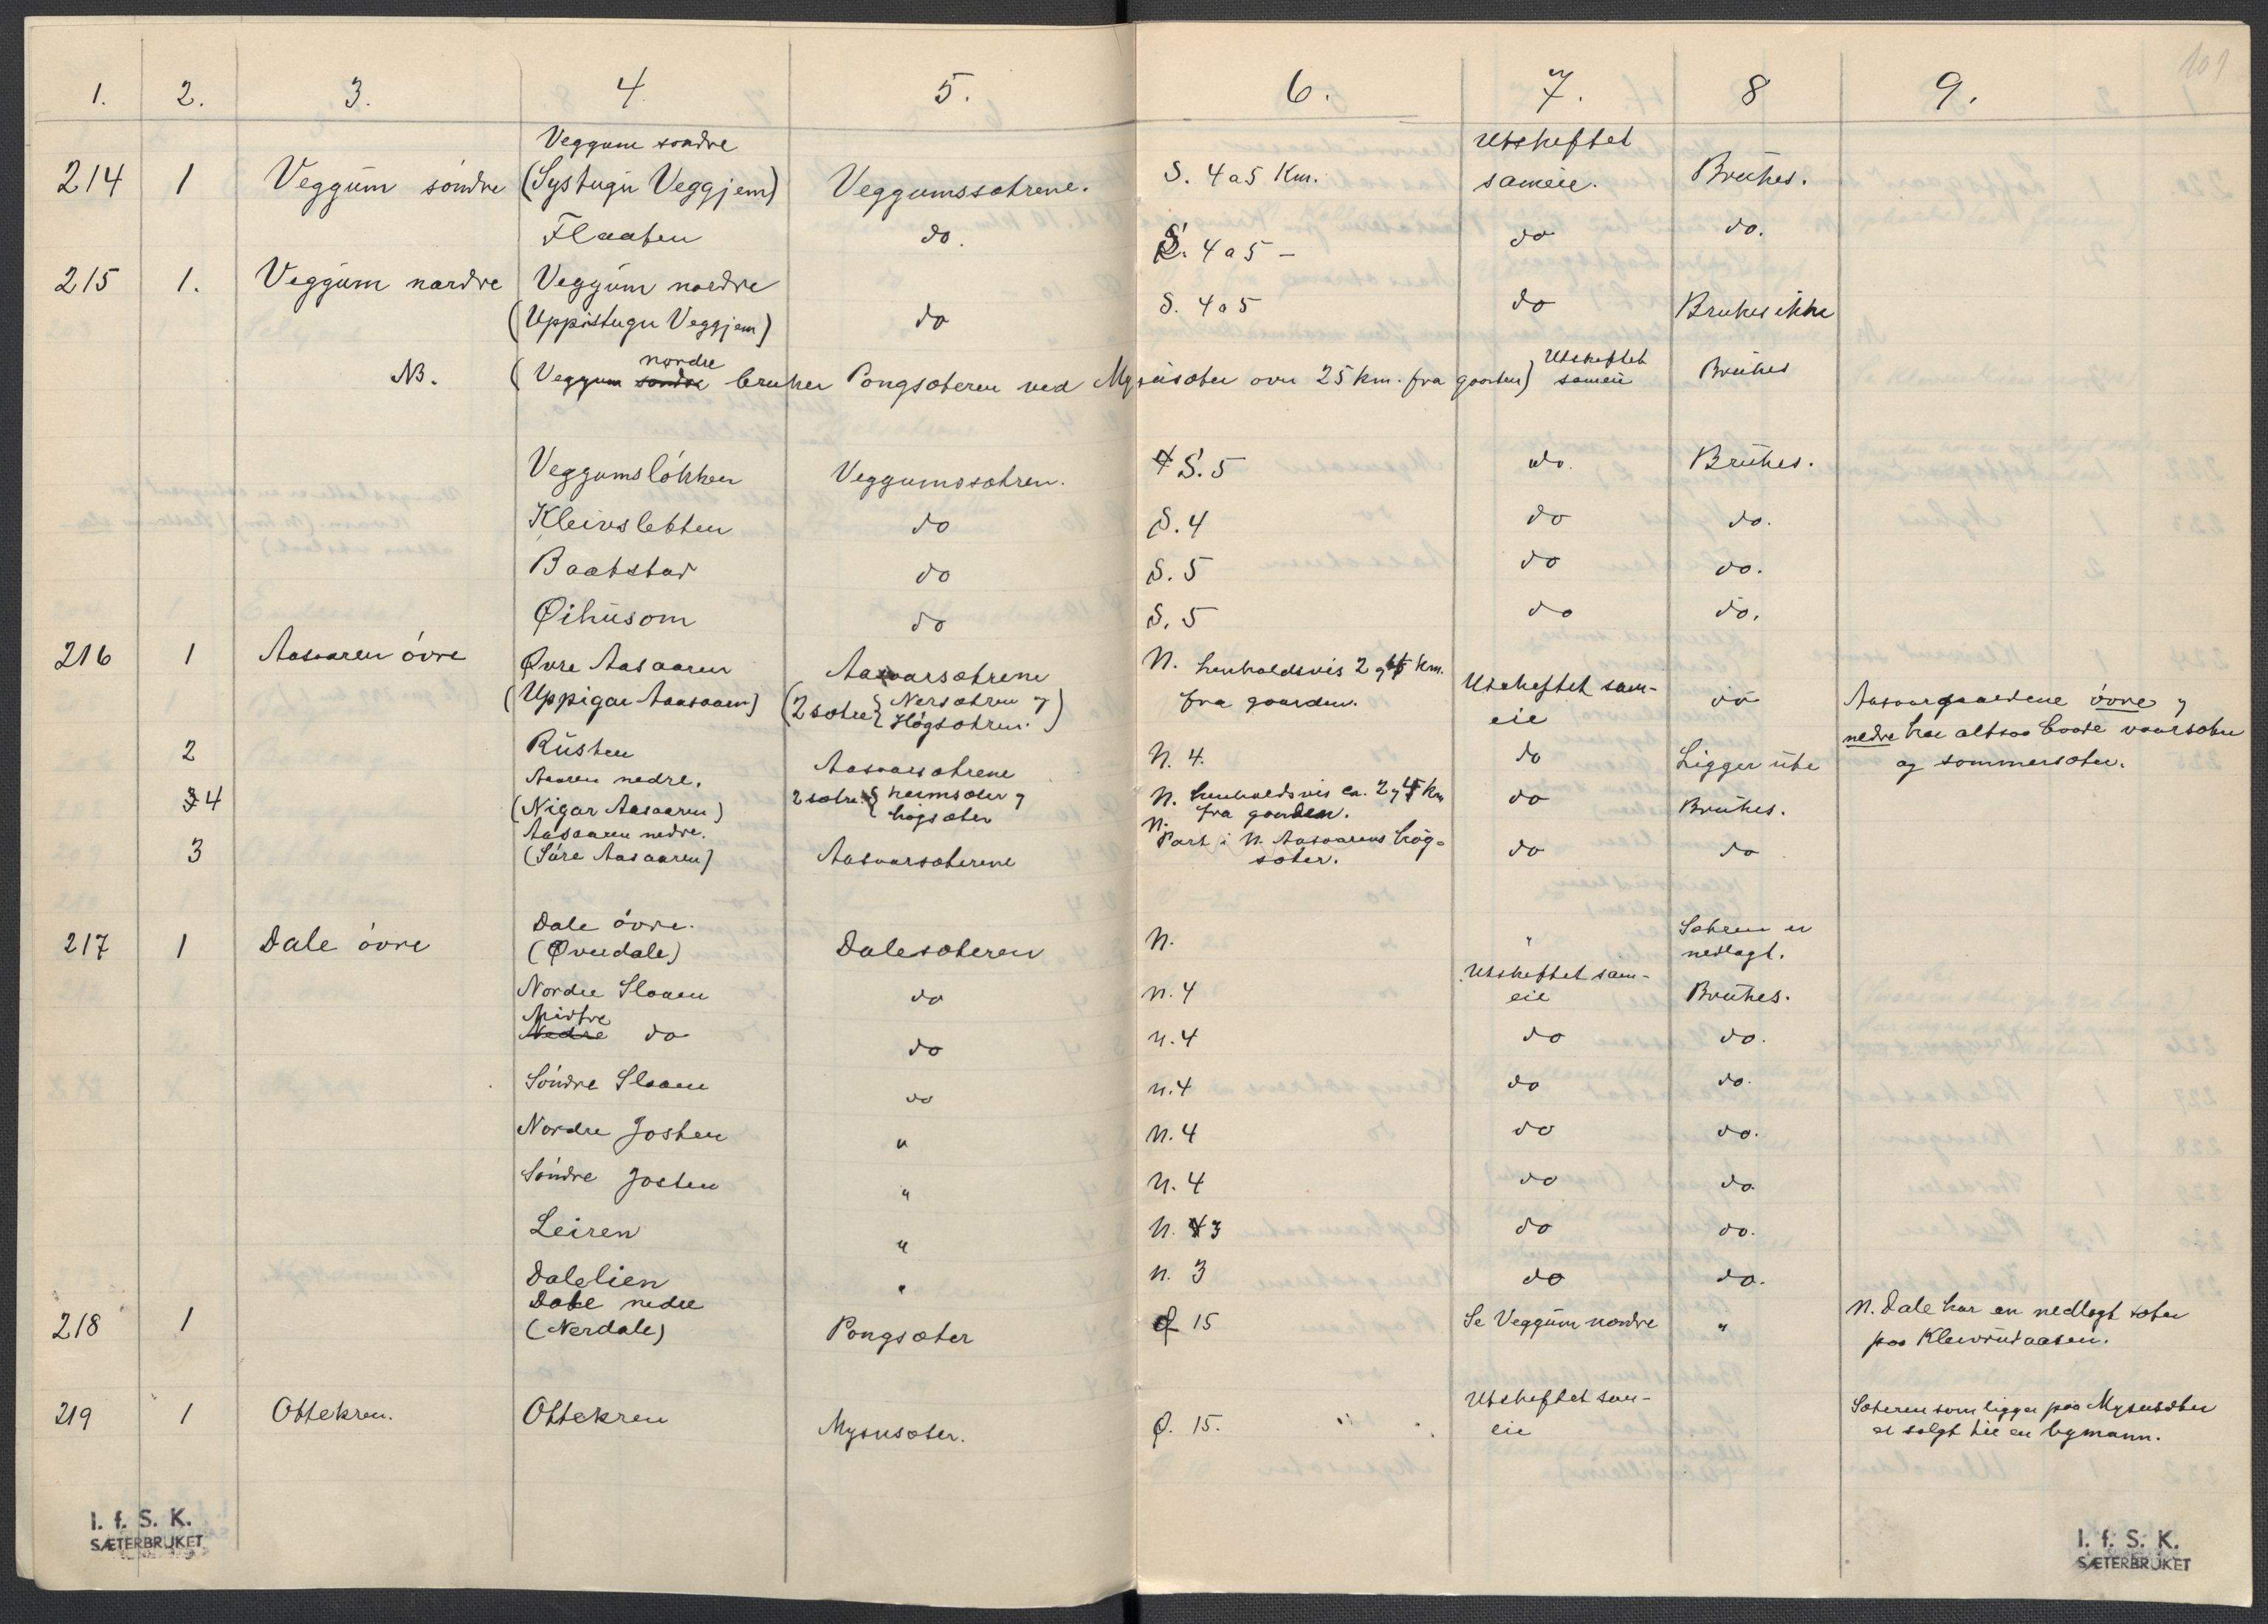 101
1. 2. 3. 4 5. 6. 7. 8 9.
Veggum søndre Utskeftet
214 1 Veggum søndre (Systugu Veggjem) Veggumssætrene. S. 4 a 5 Km. sameie. Brukes.
Flaaten do. S. 4 a 5 – do do.
215 1. Veggum nørdre Veggum nørdre
(Uppistugu Veggjem) do S. 4 a 5 do Brukes ikke
NB. (Veggum søndre nordre bruker Pongsæteren ved Mysusæter over 25 km. fra gaarden) Utskeftet sameie Brukes
Veggumsløkken Veggumssætren. S. 5 do. Brukes.
Kleivsletten do S. 4 do do.
Baatstad do S. 5 do do.
Øihusom do S. 5 do do.
216 1 Aasaaren øvre Øvre Aasaaren Aasaarsætrene N. henholdsvis 2 og 4 km.
(Uppigar Aasaaren) (2 sætre { Nersætren og Høgsætren.) fra gaarden. Utskeftet sameie do Aasaargaardene øvre og
nedre har altsaa baade vaarsæter
og sommersæter.
2 Rusten Aasaarsætrene N. 4. do Ligger ute
4 Aaaren nedre. (Nigar Aasaaren) 2 sætre { heimsæter og høgsæter N. henholdsvis ca. 2 og 4 km fra gaarden. do Brukes.
3 Aasaaren nedre. (Søre Aasaaren) Aasaarsæterene N. Part i N. Aasaarens høgsæter. do do
217 1 Dale øvre Dale øvre. (Øverdale) Dalesæteren N. " Sætren er nedlagt.
Nordre Slaaen do N. 4 Utskeftet sameie Brukes.
Nedre Midtre do do N. 4 do do.
Søndre Slaaen do N. 4 do do.
Nordre Josten " N. 4 do do.
Søndre Josten " N. 4 do do.
Leiren " N. 3 do do.
Dalelien " N. 3 do do.
218 1 Dale nedre (Nerdale) Pongsæter Ø 15 Se Veggum nordre " N. Dale har en nedlagt sæter
paa Kleivrudaasen.
219 1 Ottekren. Ottekren Mysusæter. Ø. 15. Utskeftet sameie Sæteren som ligger paa Mysusæter
er solgt til en bymann.
I. f. S. K.
SÆTERBRUKET
I. f. S. K.
SÆTERBRUKET